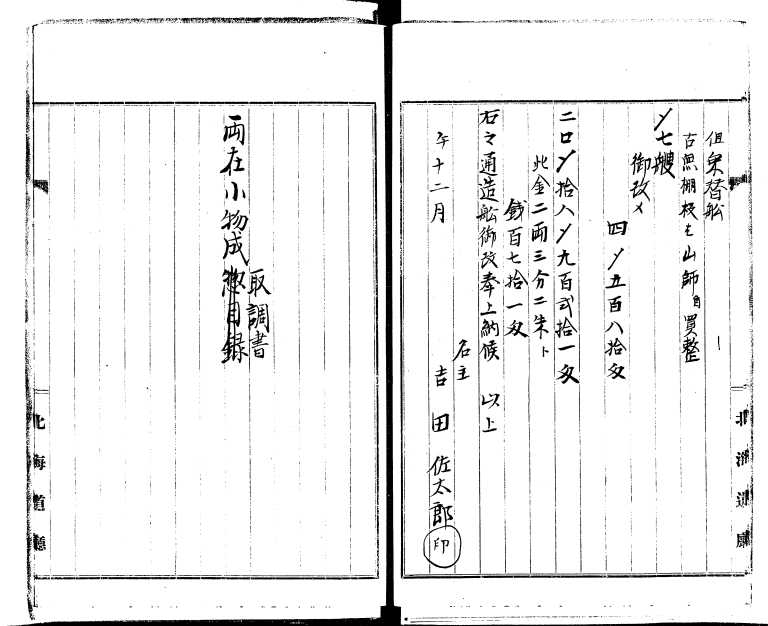 但乗替船
古魚棚板を山師自買整
〆七艘
御改〆
四〆五百八拾文
二口〆拾八〆九百弐拾一文
此金二両三分二朱ト
銭百七拾一文
右之通造船御改奉上納候 以上
午十二月
名主
吉田佐太郎 印
北海道廳
両在小物成惣目録
取調書
北海道廳